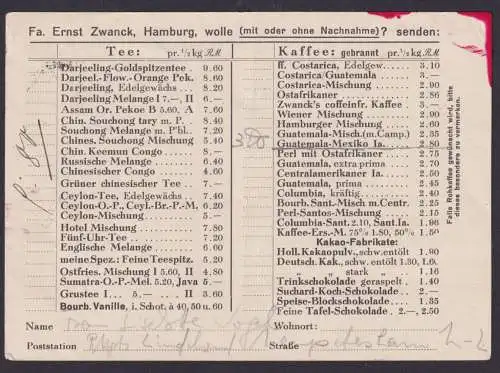 Fa. Ernst Zwanck, Hamburg, wolle (mit oder ohne Nachnahme)? senden:
Tee: pr. 1/2 kg RM
Darjeeling-Goldspitzentee . 9.60
Darjeel.-Flow.-Orange Pek. 8.60
Darjeeling, Edelgewächs . 8.20
Darjeeling Melange I 7.—, II 6.—
Assam Or. Pekoe B 5.60, A 7.60
Chin. Souchong tary m. P. 8.40
Souchong Melange m. P'bl. 7.20
Chines. Souchong Mischung 5.40
Chin. Keemun Congo . . 8.—
Russische Melange . . . 6.40
Chinesischer Congo . . . 4.60
Grüner chinesischer Tee . 7.—
Ceylon-Tee, Edelgewächs . 7.40
Ceylon-O.-P., Ceyl.-Br.-P.-M. 6.20
Ceylon-Mischung . . . 5.—
Hotel Mischung . . . 7.80
Fünf-Uhr-Tee . . . 7.20
Englische Melange . . . 6.60
meine Spez.: Feine Teespitz. 5.20
Ostfries. Mischung I 5.60, II 4.80
Sumatra-O.-P.-Mel. 5.20, Java 5.—
Grustee I . . 5.—, II 3.80
Bourb. Vanille, i. Schot. à 40, 50 u. 60
Kaffee: gebrannt pr. 1/2 kg RM
ff. Costarica, Edelgew. . . 3.10
Costarica/Guatemala . . 3.—
Costarica-Mischung . . . 2.90
Ostafrikaner . . . 2.86
Zwanck's coffeinfr. Kaffee . 3.—
Wiener Mischung . . . 2.90
Hamburger Mischung . . 2.60
Guatemala-Misch. (m. Camp.) 2.35
Guatemala-Mexiko Ia. . . 2.80
Perl mit Ostafrikaner . . 2.75
Guatemala, extra prima . . 2.70
Centralamerikaner Ia. . . 2.50
Guatemala, prima . . . 2.45
Columbia, kräftig . . . 2.40
Bourb. Sant.-Misch m. Centr. 2.25
Perl-Santos-Mischung . . 2.15
Columbia-Sant. 2.10, Sant. Ia. 1.96
Kaffee-Ers.-M. 75% 1.80, 50% 1.50
Kakao-Fabrikate:
Holl. Kakaopulv., schw. entölt 1.90
Deutsch. Kak., schw. entölt 1.30, 1.6.
" " stark " . 1.16
Trinkschokolade geraspelt . 1.40
Suchard-Koch-Schokolade . 2.—
Speise-Blockschokolade . . 1.35
Feine Tafel-Schokolade 2.—, 2.50
Falls Rohkaffee gewünscht wird, bitte
dieses besonders zu vermerken.
Name
Wohnort:
Poststation
Straße